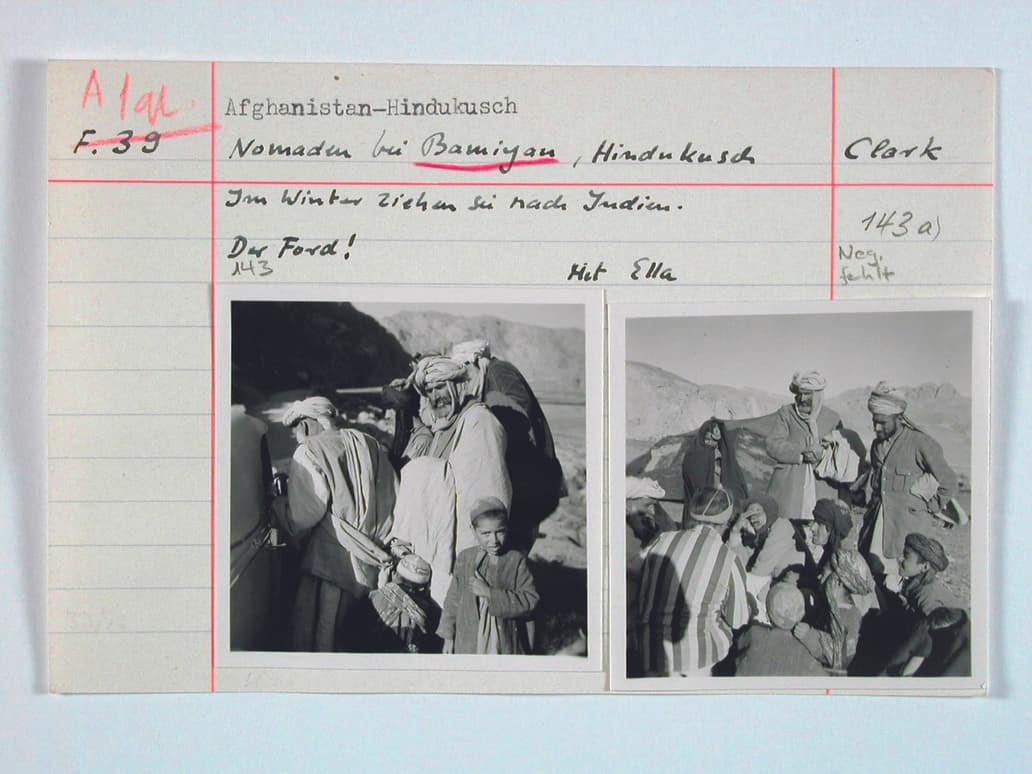 Afgh.
F. 39
Afghanistan-Hindukusch
Nomaden bei Bamiyan, Hindukusch
Clark
Im Winter ziehen sie nach Indien.
143 a)
Der Ford!
Neg.
fehlt
143
Mit Ella